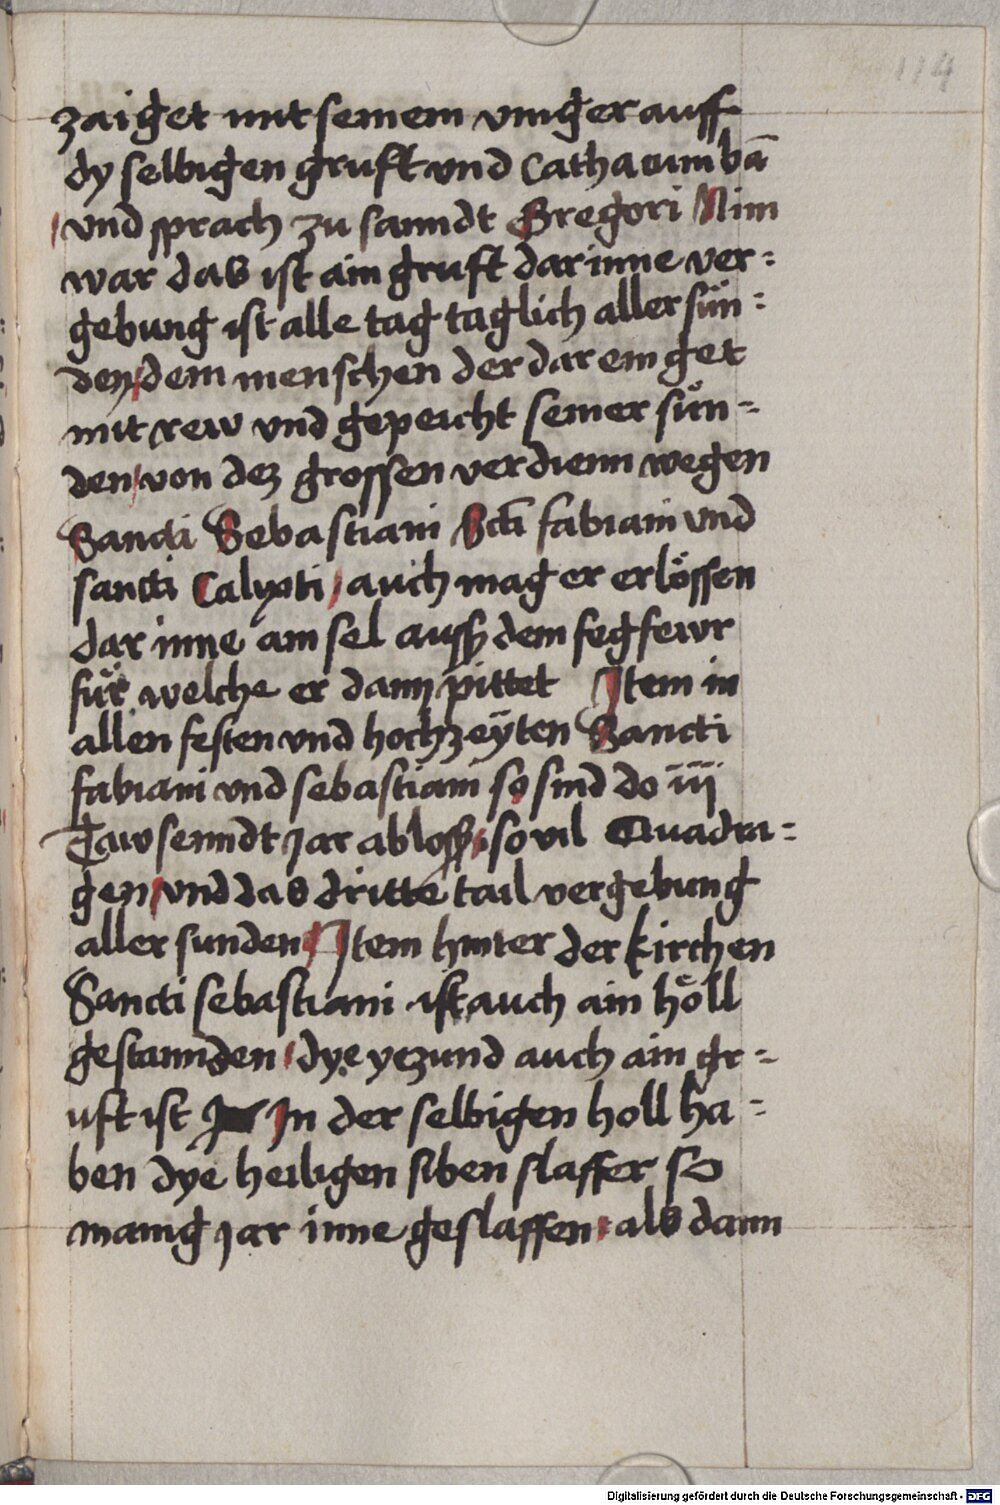 114
zaiget mit seinem vinger auff
dy selbigen gruft vnd Cathacumbā
vnd sprach zu sanndt Gregori Nim
war das ist ain gruft dar inne ver=
gebung ist alle tag taglich aller sün=
den dem menschen der dar ein get
mit rew vnd gepeicht seiner sün=
den von dez grossen verdienn wegen
Sancti Sebastiani Scti fabiani vnd
sancti Calyxti auch mag er erlössen
dar inne ain sel auß dem fegfewr
für welche er dann pittet Item in
allen festen vnd hochzeyten Sancti
fabiani vnd sebastiani so sind do iij
Tawsenndt jar abloß so vil Quadra=
gen vnd das dritte tail vergebung
aller sunden Item hinter der kirchen
Sancti sebastiani ist auch ain höll
gestannden dye yezund auch ain gr=
uft ist In der selbigen holl ha=
ben dye heiligen siben slaffer so
manig jar inne geslaffen als dann
Digitalisierung gefördert durch die Deutsche Forschungsgemeinschaft - DFG